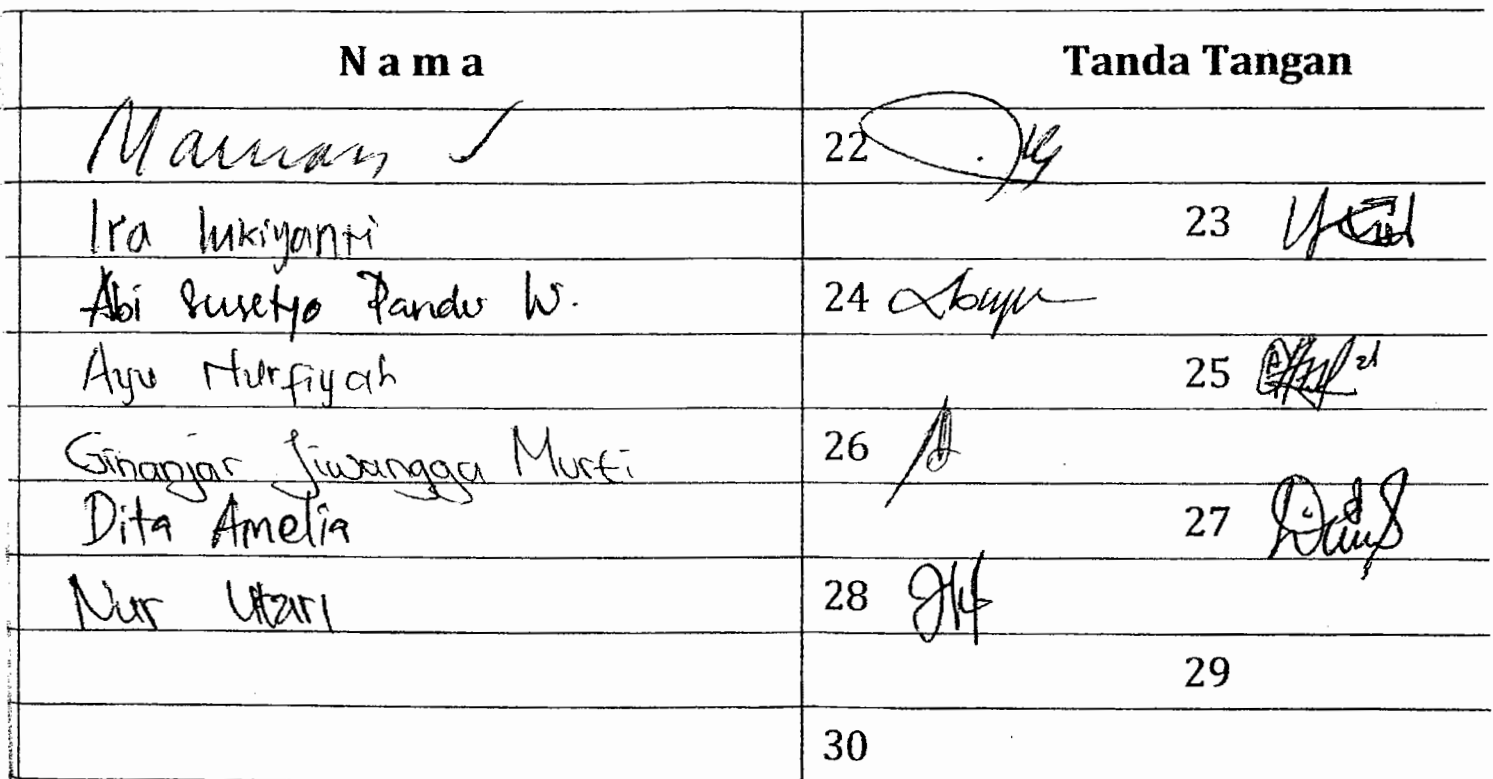 N a m a Tanda Tangan
Maman S 22
Ira lukiyanti 23
Abi Susetyo Pandu W. 24
Ayu Nurfiyah 25
Ginanjar Jiwangga Murti 26
Dita Amelia 27
Nur Utari 28
29
30